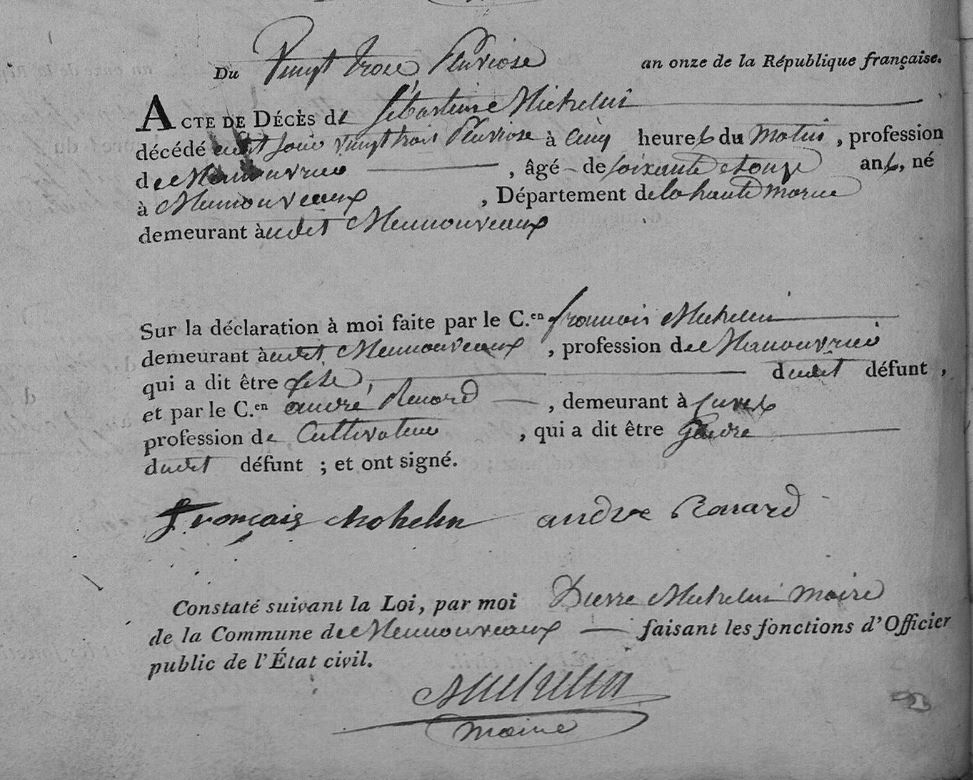 Du Vingt trois Pluviose an onze de la République française.
ACTE DE DÉCÈS de Sébastien Michelin
décédé cedit jour vingt trois Pluviose à Cinq heures du Matin, profession
de Manouvrier, âgé de soixante et onze ans, né
à Mennouveaux, Département de la haute Marne
demeurant audit Mennouveaux
Sur la déclaration à moi faite par le C.en françois Michelin
demeurant audit Mennouveaux, profession de Manouvrier
qui a dit être fils, dudit défunt,
et par le C.en andré Renard, demeurant à Cuves
profession de Cultivateur, qui a dit être Gendre
dudit défunt ; et ont signé.
françois Michelin andre Renard
Constaté suivant la Loi, par moi Pierre Michelin maire
de la Commune de Mennouveaux faisant les fonctions d'Officier
public de l'État civil.
Michelin
maire